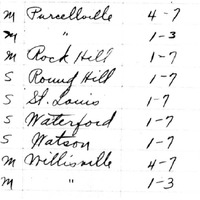 M Purcellville 4-7
M " 1-3
M Rock Hill 1-7
S Round Hill 1-7
S St. Louis 1-7
S Waterford 1-7
S Watson 1-7
M Willisville 4-7
M " 1-3